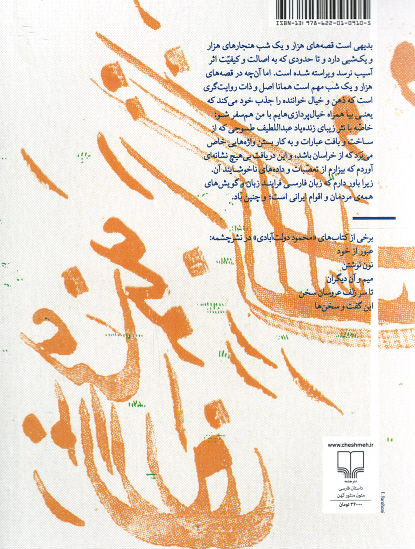 ISBN-13: 978-622-01-0910-5
بدیهی است قصه‌های هزار و یک شب هنجارهای هزار
و یک‌شبی دارد و تا حدودی که به اصالت و کیفیّت اثر
آسیب نرسد ویراسته شده است. اما آن‌چه در قصه‌های
هزار و یک شب مهم است همانا اصل و ذات روایت‌گری
است که ذهن و خیال خواننده را جذب خود می‌کند که
یعنی بیا همراه خیال‌پردازی‌هایم با من هم‌سفر شو؛
خاصّه با نثر زیبای زنده‌یاد عبداللطیف طسوجی که از
ساخت و بافت عبارات و به کار بستن واژه‌هایی خاص
می‌برد که از خراسان باشد، و این دریافت بی‌هیچ نشانه‌ای
آوردم که بیزارم از تعصبات و داده‌های ناخوشایند آن.
زیرا باور دارم که زبان فارسی فرایند زبان و گویش‌های
همه‌ی مردمان و اقوام ایرانی است؛ و چنین باد.
برخی از کتاب‌های «محمود دولت‌آبادی» در نشرچشمه:
عبور از خود
نون نوشتن
میم و آن دیگران
تا سر زلف عروسان سخن
این گفت و سخن‌ها
www.cheshmeh.ir
نشرچشمه
داستان فارسی
متون منثور کهن
تومان